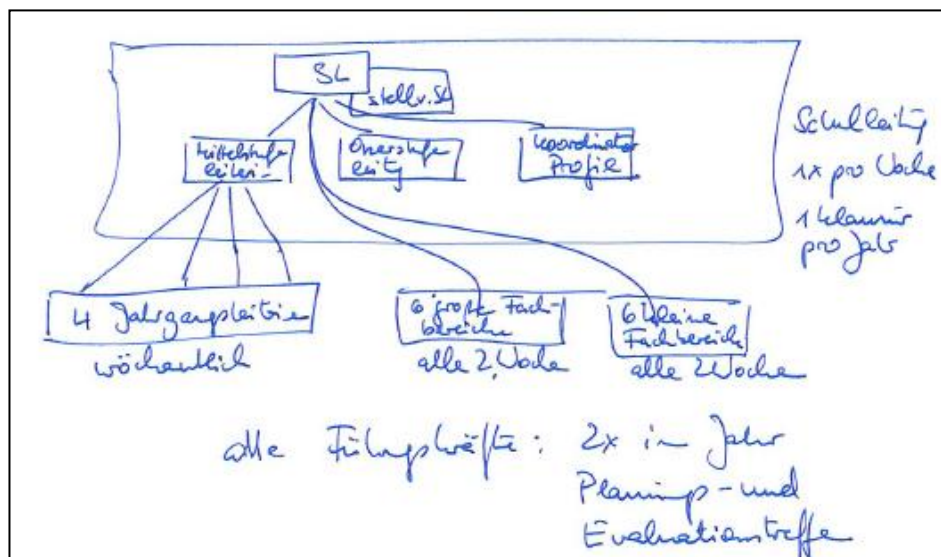 SL
stellv. SL
Mittelstufe
Oberstufe
leitg
Koordinator
Profile
Schulleitg
1x pro Woche
1 Klausur
pro Jahr
4 Jahrgangsleiterin
wöchentlich
6 große Fach-
bereiche
alle 2 Woche
6 kleine
Fachbereiche
alle 2 Wochen
alle Führungskräfte: 2x im Jahr
Planungs- und
Evaluationstreffen